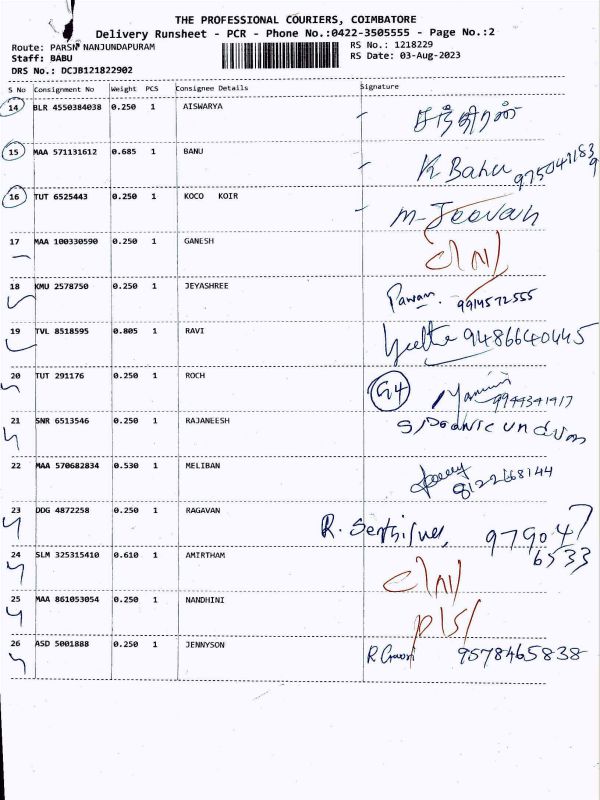 THE PROFESSIONAL COURIERS, COIMBATORE
Delivery Runsheet - PCR - Phone No.:0422-3505555 - Page No.:2
Route: PARSN NANJUNDAPURAM
RS No.: 1218229
Staff: BABU
RS Date: 03-Aug-2023
DRS No.: DCJB121822902
S No Consignment No Weight PCS Consignee Details Signature
14 BLR 4550384038 0.250 1 AISWARYA சந்திரன்
15 MAA 571131612 0.685 1 BANU K Banu
16 TUT 6525443 0.250 1 KOCO KOIR M-Jeevah
17 MAA 100330590 0.250 1 GANESH
18 KMU 2578750 0.250 1 JEYASHREE Pawan.
19 TVL 8518595 0.805 1 RAVI 9486640445
20 TUT 291176 0.250 1 ROCH G4 9944341417
21 SNR 6513546 0.250 1 RAJANEESH
22 MAA 570682834 0.530 1 MELIBAN 8122668144
23 DDG 4872258 0.250 1 RAGAVAN R. 979047
6533
24 SLM 325315410 0.610 1 AMIRTHAM
25 MAA 861053054 0.250 1 NANDHINI
26 ASD 5001888 0.250 1 JENNYSON 9578465838